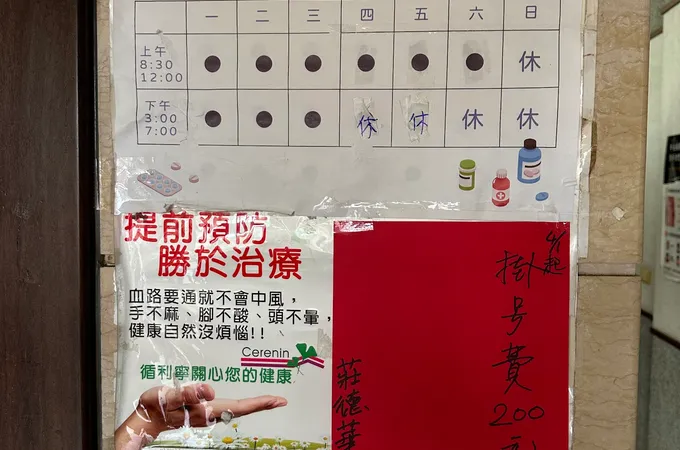 一 二 三 四 五 六 日
上午
8:30
12:00
● ● ● ● ● ● 休
下午
3:00
7:00
● ● ● 休 休 休 休
提前預防
勝於治療
血路要通就不會中風，
手不麻、腳不酸、頭不暈，
健康自然沒煩惱!!
Cerenin
循利寧關心您的健康
4/1起
掛号費200
莊德華